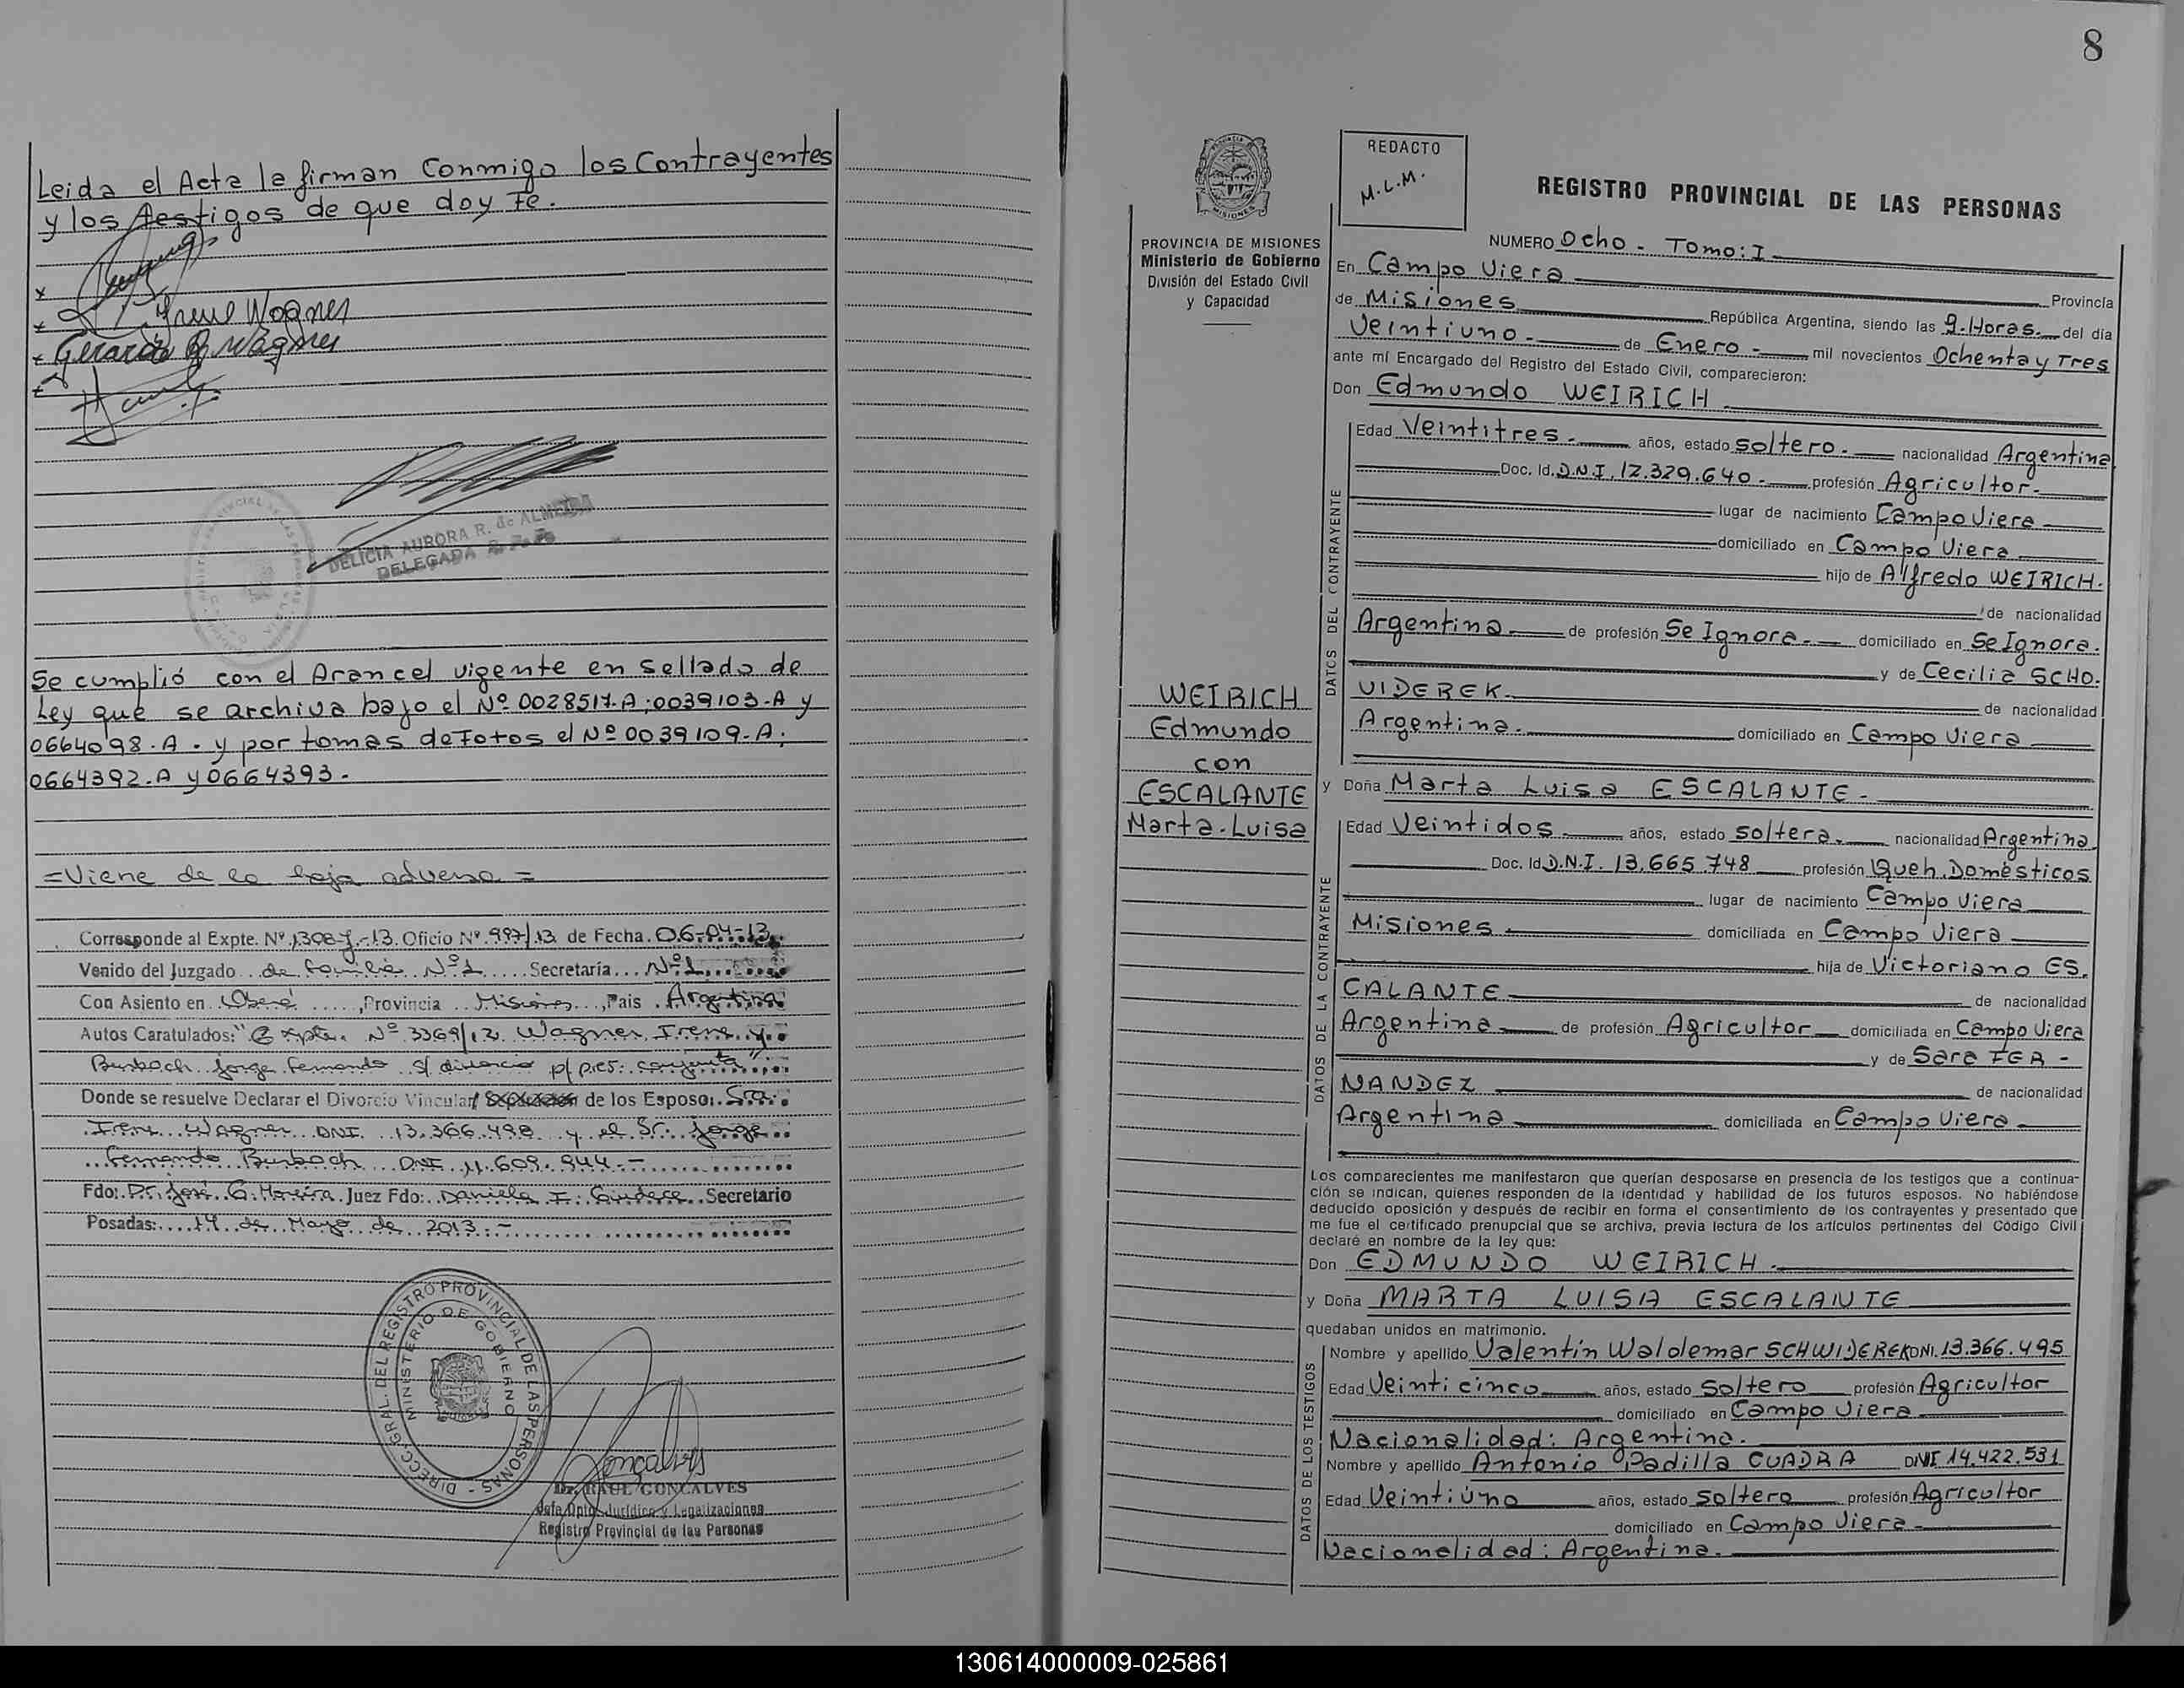 8
Leida el Acta la firman Conmigo los Contrayentes
y los testigos de que doy Fe.
x
x Irene Wagner
x Gerardo R Wagner
DELICIA AURORA R. de ALMEIDA
DELEGADA
Se cumplió con el Arancel vigente en sellado de
Ley que se archiva bajo el Nº 0028517-A; 0039103-A y
0664098-A. y por tomas de Fotos el Nº 0039109-A;
0664392-A y 0664393.
=Viene de la hoja adversa=
Corresponde al Expte. Nº 1308-J-13 Oficio Nº 997/13 de Fecha 06-04-13
Venido del Juzgado de Familia Nº1 Secretaría Nº1
Con Asiento en Oberá, Provincia Misiones, Pais Argentina
Autos Caratulados: "Expte. Nº 3369/12 Wagner Irene y
Burbach Jorge Fernando s/ divorcio p/ pres. conjunta"
Donde se resuelve Declarar el Divorcio Vincular/ de los Esposo: Sra.
Irene Wagner DNI 13.366.498 y el Sr. Jorge
Fernando Burbach DNI 11.609.944.-
Fdo: Dr. José G. Moreira Juez Fdo: Daniela I. Secretario
Posadas: 14 de Mayo de 2013.-
DIRECC. GRAL. DEL REGISTRO PROVINCIAL DE LAS PERSONAS -
MINISTERIO DE GOBIERNO
Gonçalves
Dr. RAUL GONCALVES
Jefe Dpto. Jurídico y Legalizaciones
Registro Provincial de las Personas
PROVINCIA DE MISIONES
Ministerio de Gobierno
División del Estado Civil
y Capacidad
WEIRICH
Edmundo
con
ESCALANTE
Marta-Luisa
REDACTO
M.L.M.
REGISTRO PROVINCIAL DE LAS PERSONAS
NUMERO Ocho - Tomo: I
En Campo Viera Provincia
de Misiones República Argentina, siendo las 9-Horas. del día
Veintiuno - de Enero - mil novecientos Ochenta y Tres
ante mí Encargado del Registro del Estado Civil, comparecieron:
Don Edmundo WEIRICH
DATOS DEL CONTRAYENTE
Edad Veintitres - años, estado soltero - nacionalidad Argentina
Doc. Id. D.N.I. 12.329.640 - profesión Agricultor-
lugar de nacimiento Campo Viera
domiciliado en Campo Viera
hijo de Alfredo WEIRICH.
de nacionalidad
Argentina de profesión Se Ignora - domiciliado en Se Ignora.
y de Cecilia SCHO.
VIDEREK. de nacionalidad
Argentina. domiciliado en Campo Viera
y Doña Marta Luisa ESCALANTE -
DATOS DE LA CONTRAYENTE
Edad Veintidos años, estado soltera. nacionalidad Argentina
Doc. Id D.N.I. 13.665.748 profesión Queh. Domésticos
lugar de nacimiento Campo Viera
Misiones domiciliada en Campo Viera
hija de Victoriano ES.
CALANTE de nacionalidad
Argentina de profesión Agricultor domiciliada en Campo Viera
y de Sara FER -
NANDEZ de nacionalidad
Argentina domiciliada en Campo Viera
Los comparecientes me manifestaron que querían desposarse en presencia de los testigos que a continua-
ción se indican, quienes responden de la identidad y habilidad de los futuros esposos. No habiéndose
deducido oposición y después de recibir en forma el consentimiento de los contrayentes y presentado que
me fue el certificado prenupcial que se archiva, previa lectura de los artículos pertinentes del Código Civil
declaré en nombre de la ley que:
Don EDMUNDO WEIRICH.
y Doña MARTA LUISA ESCALANTE
quedaban unidos en matrimonio.
DATOS DE LOS TESTIGOS
Nombre y apellido Valentín Waldemar SCHWIDEREK DNI. 13.366.495
Edad Veinticinco años, estado soltero profesión Agricultor
domiciliado en Campo Viera
Nacionalidad: Argentina.
Nombre y apellido Antonio Padilla CUADRA DNI 14.422.531
Edad Veintiúno años, estado soltero profesión Agricultor
domiciliado en Campo Viera
Nacionalidad: Argentina.
130614000009-025861